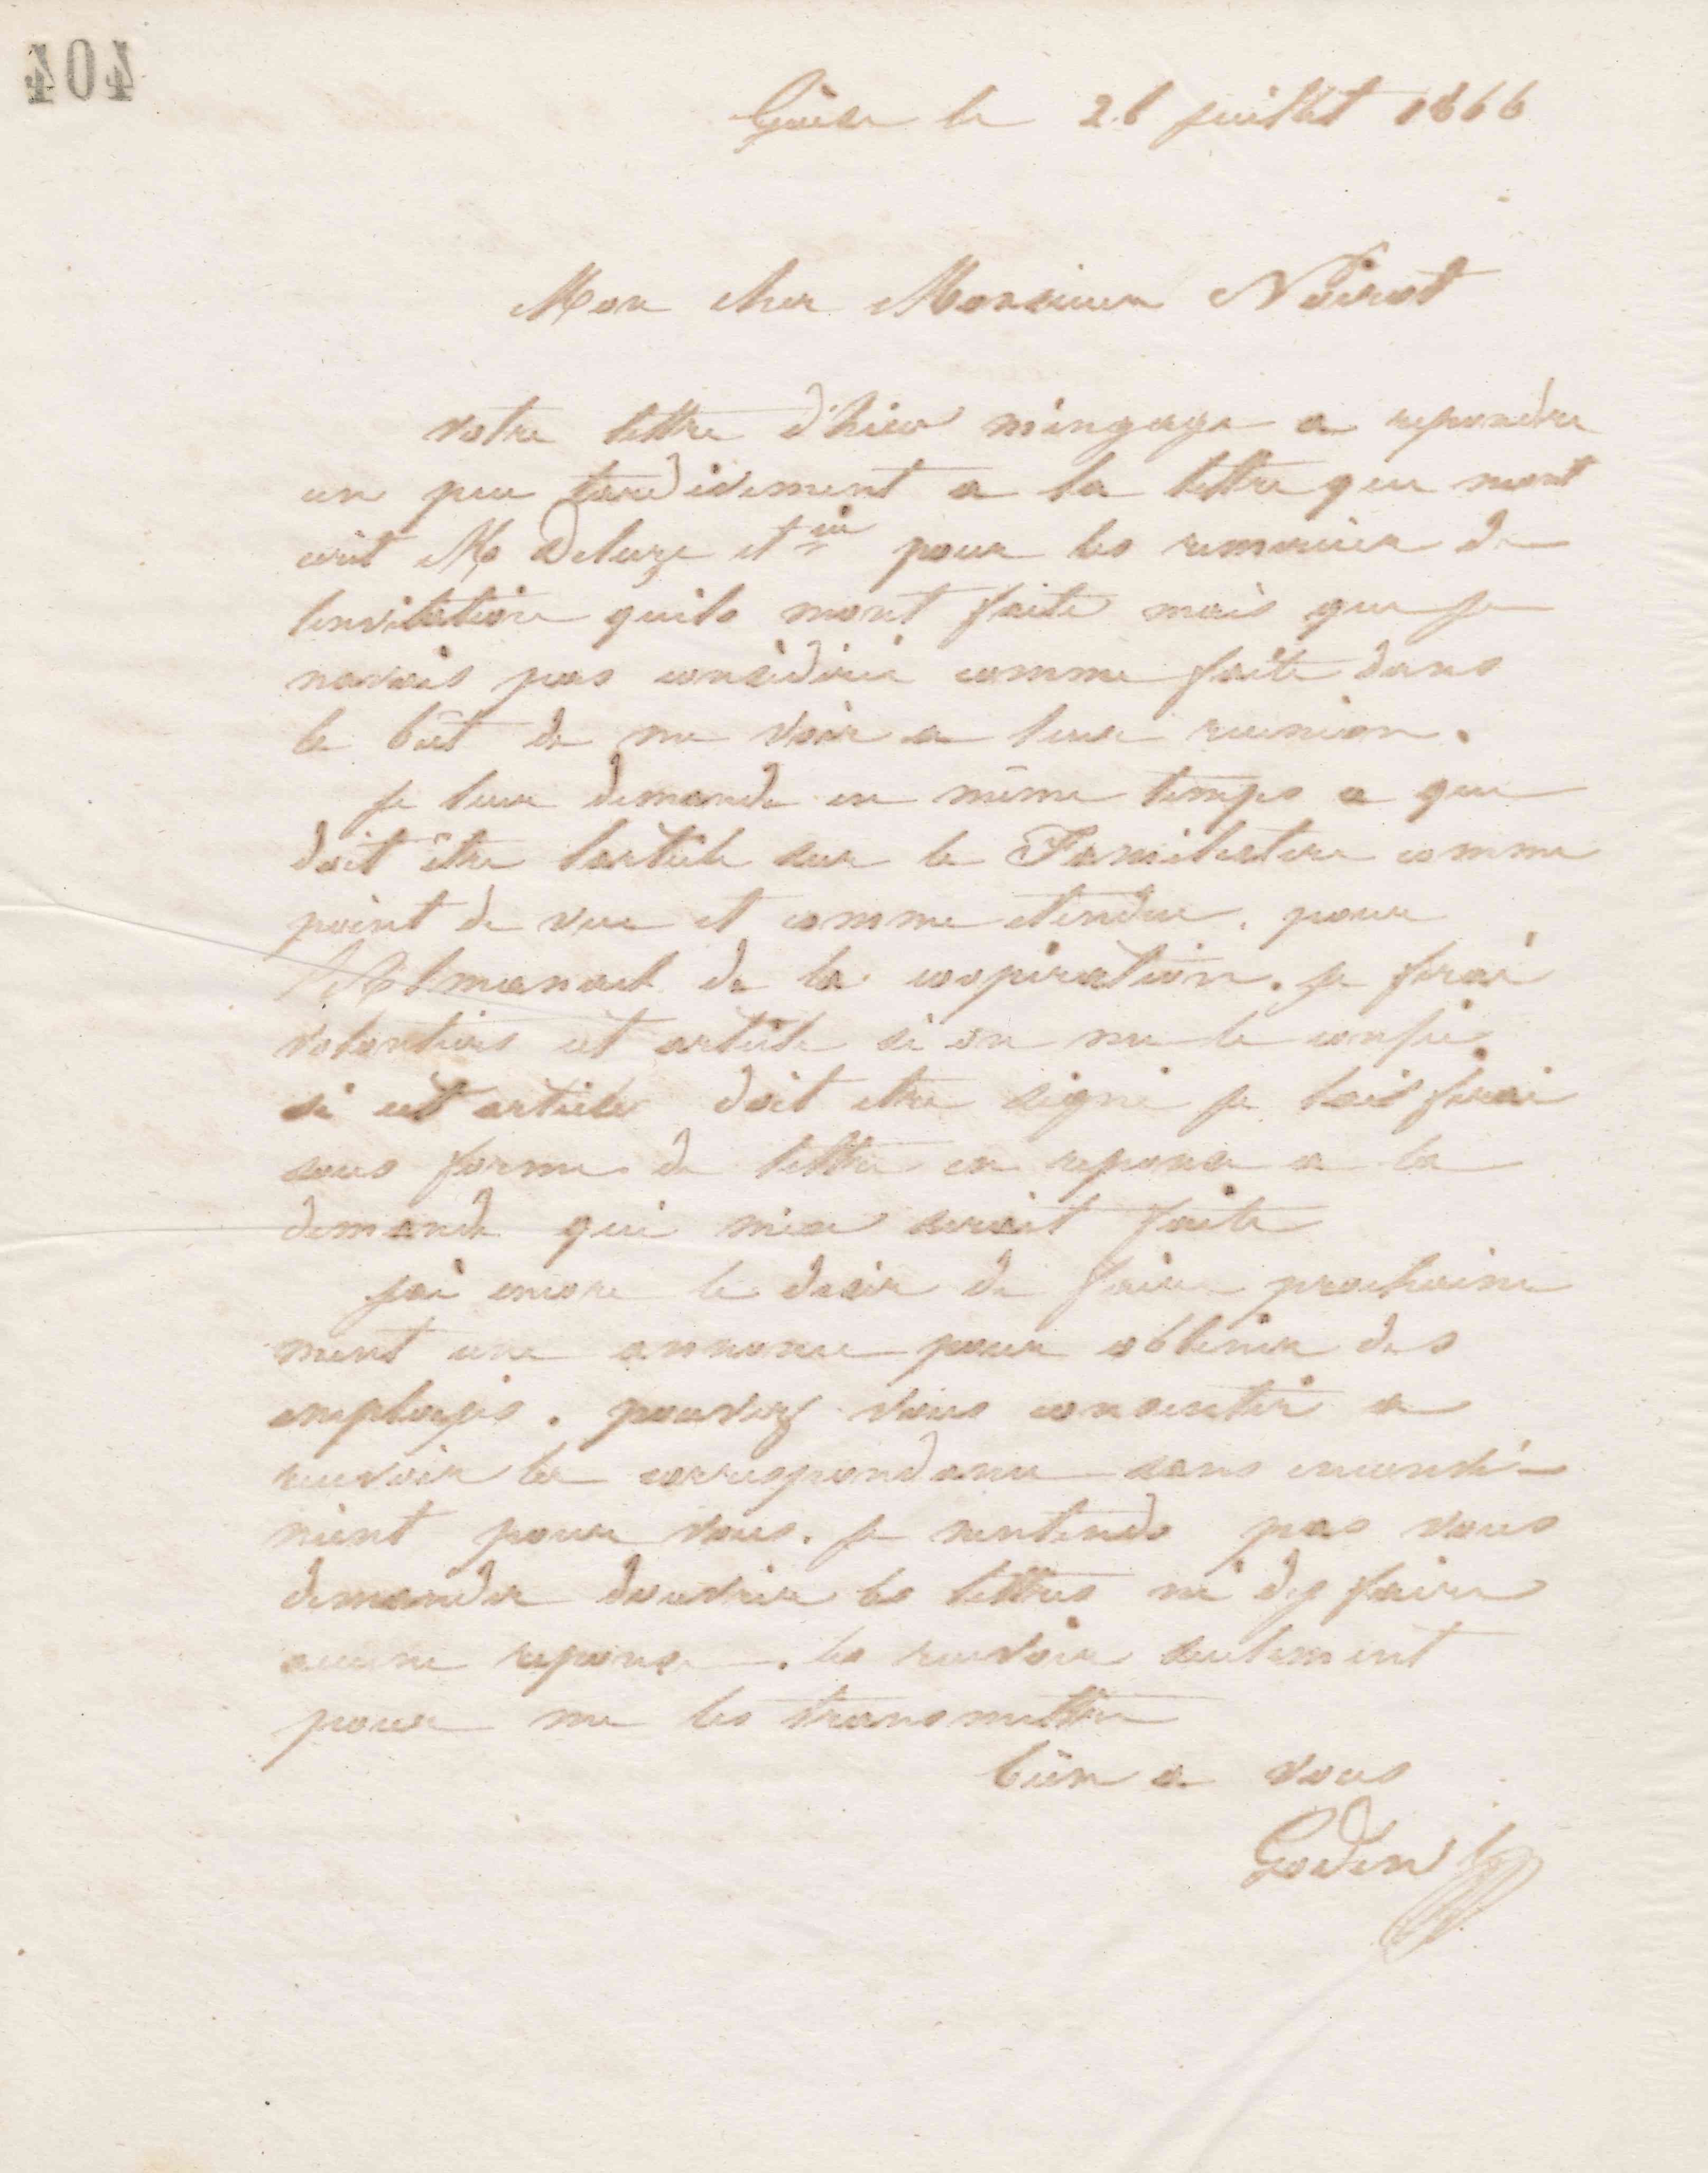 404
Guise le 26 juillet 1866
Mon cher Monsieur Noirot
votre lettre d'hier m'engage a repondre
un peu tardivement a la lettre que mont
ecrit M Deluze et cie pour les remercier de
linvitation quils mont faite mais que je
navais pas considérée comme faite dans
le bût de me voir a leur reunion.
je leur demande en même temps ce que
doit être larticle sur le Familistere comme
point de vue et comme etendue. pour
lAlmanach de la coopération. je ferai
volontiers cet article si on me le confie
si cet article doit etre signé je le ferai
sous forme de lettre en reponse a la
demande qui men serait faite
jai encore le desir de faire prochaine
ment une annonce pour obtenir des
employés. pouvez vous consentir a
recevoir la correspondance sans inconvé-
nient pour vous. je nentends pas vous
demander douvrir les lettres ni dy faire
aucune reponse. les recevoir seulement
pour me les transmettre
bien a vous
Godin